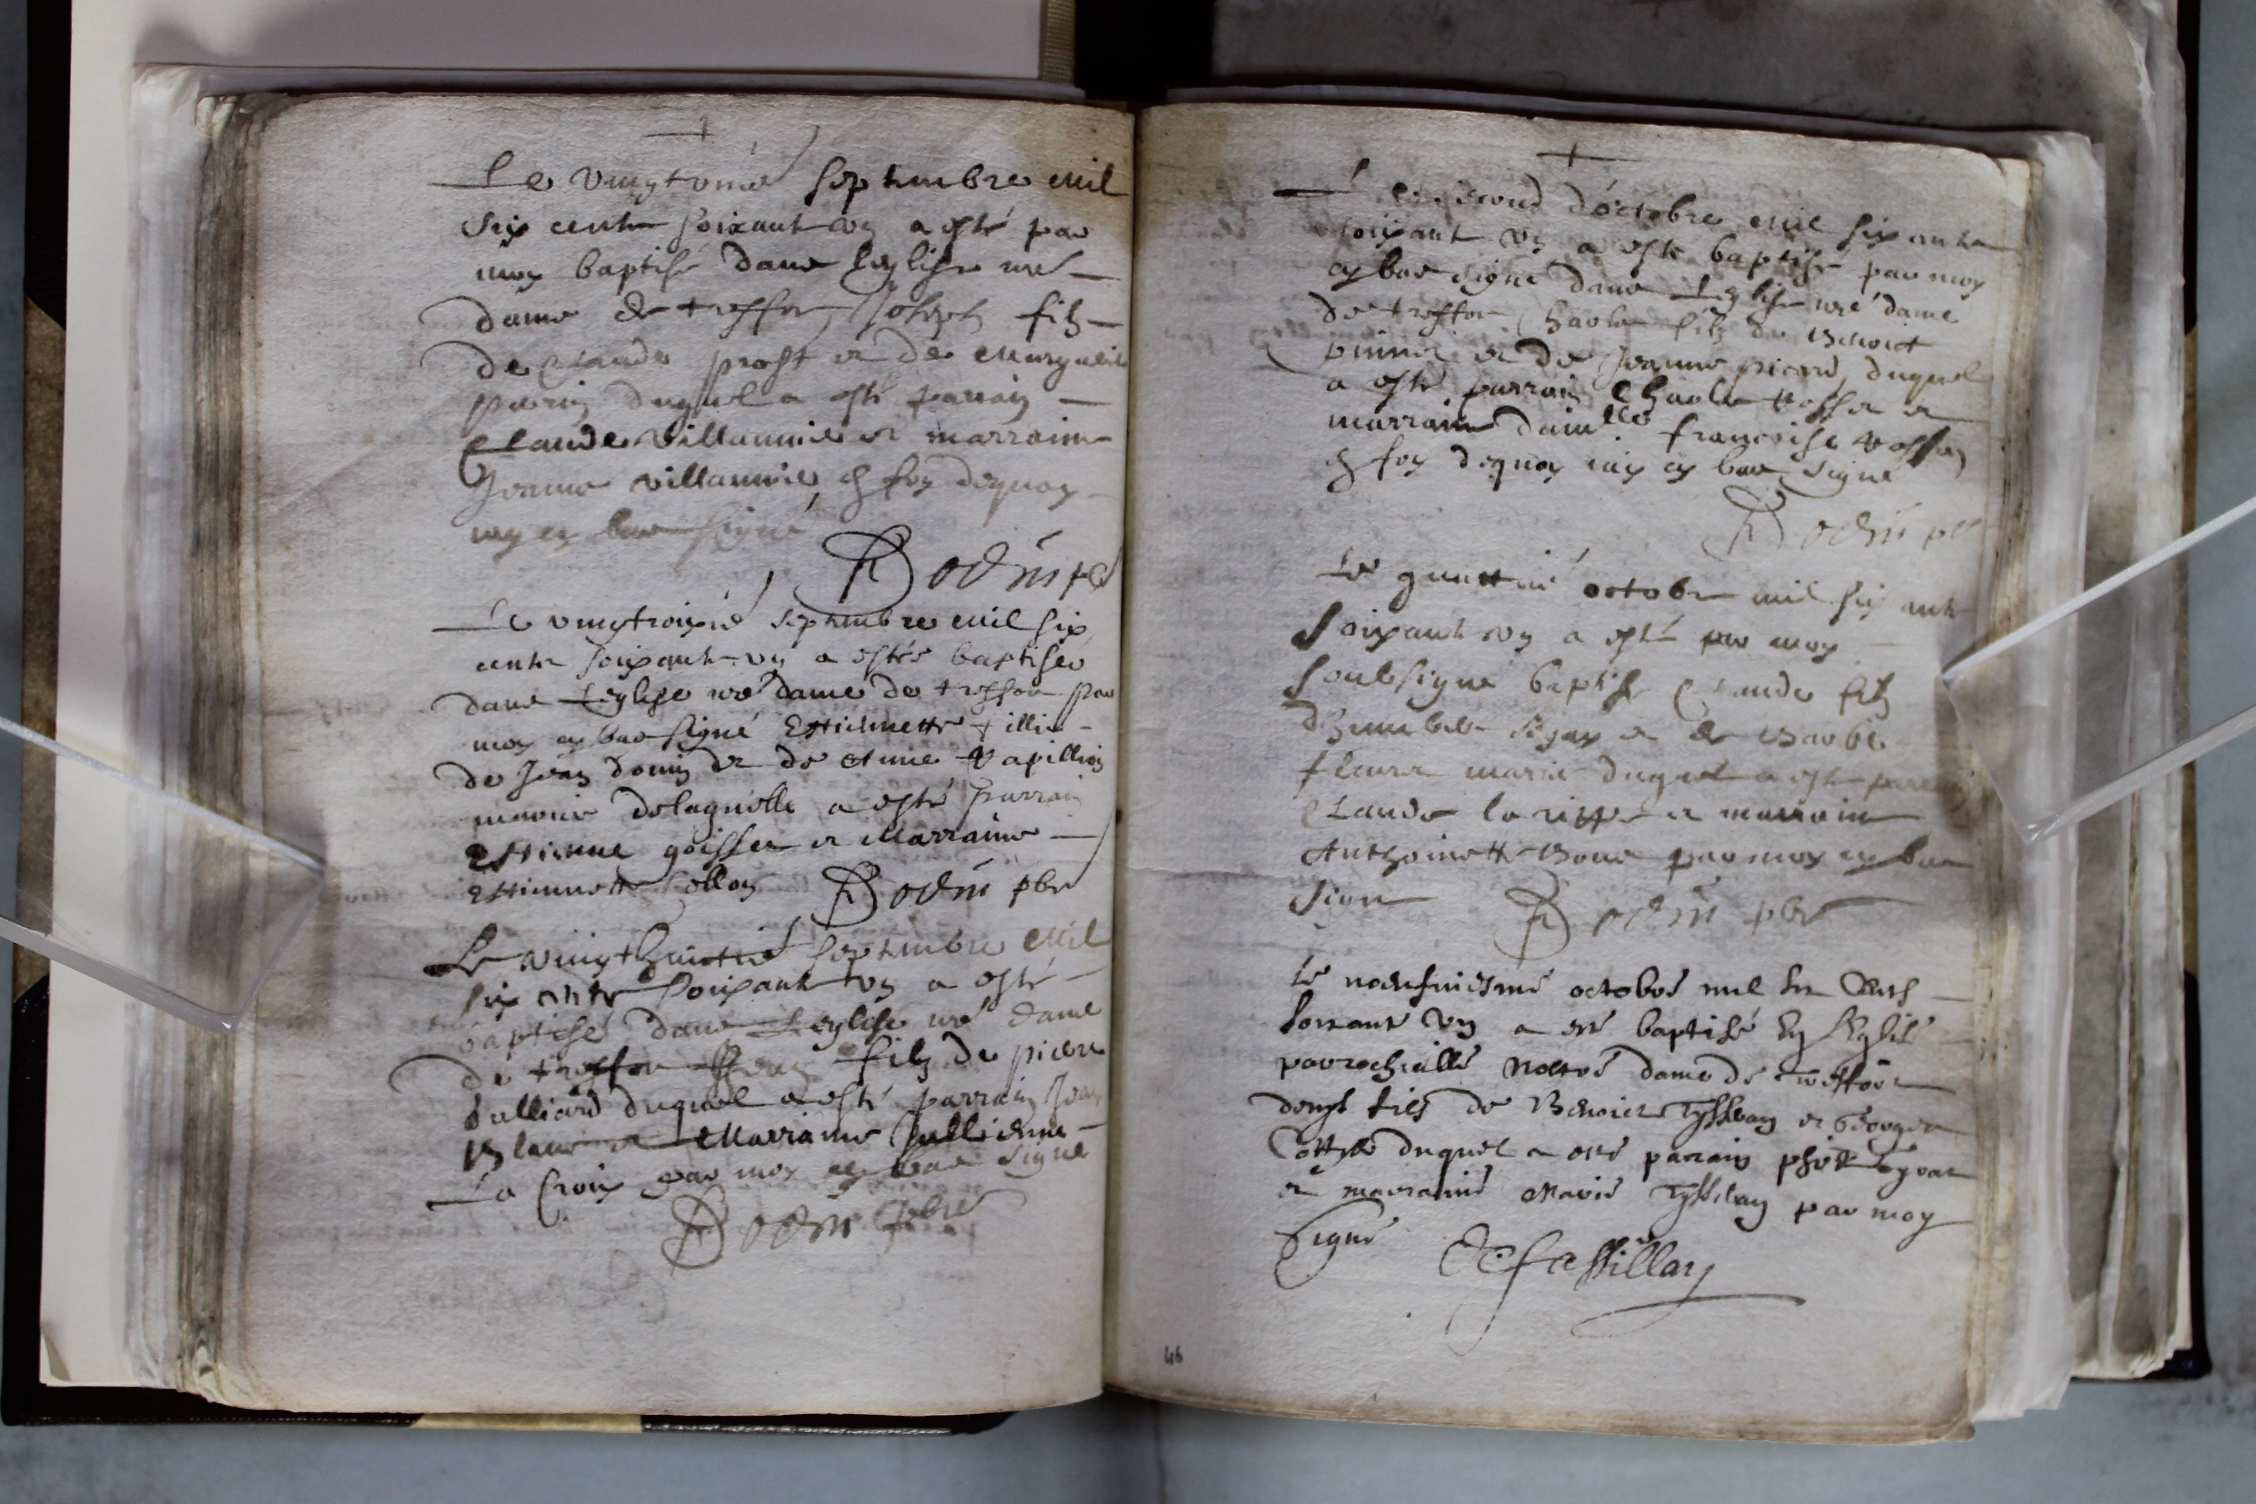 Le vingtunié septembre mil
six cents soixante un a esté par
moy baptisé dans leglise nre
dame de treffor, Joseph filz
de Claude prost et de Marguerit
perrin duquel a esté parrain
Claude villaumie et marraine
Jeanne villaumie, en foy dequoy
me cy bas signé
Bodin pb
Le vingtroisié septembre mil six
cents soixante un a estée baptisée
dans Leglise nre dame de treffor par
moy cy bas signé Estiennette fillie
de Jean donin et de Anne Papillion
mariés delaquelle a esté parrain
Estienne goiffet et Marraine
Estiennette
Bodin pbr
Le vingthuictié septembre mil
six cents soixante un a esté
baptisé dans Leglise nre dame
de treffor Jean filz de piere
Julliard duquel a esté parrain Jean
et Marraine Jullienne
La Croix par moy cy bas signé
Bodin pbre
Le second d'octobre mil six cents
soixante un a esté baptisé par moy
cy bas signé dans Leglise nre dame
de treffor, Charle filz de Benoict
et de Jeanne picard, duquel
a esté parrain Charle et
marraine damlle francoise
en foy dequoy me cy bas signé
Bodin pb
Le octobre mil six cents
soixante un a esté par moy
soubsigné baptisé Claude filz
d'humbert et de Barbe
mariés duquel a esté parrain
Claude la rippe et marraine
Anthoinette par moy cy bas
signé Bodin pbr
Le noeufviesme octobre mil six cents
soixante un a esté baptisé en leglise
parrochialle nostre dame de Treffort
denys fils de Benoict Tyssban et Georgette
duquel a esté parain
et marraine Marie Tyssban par moy
signé
46